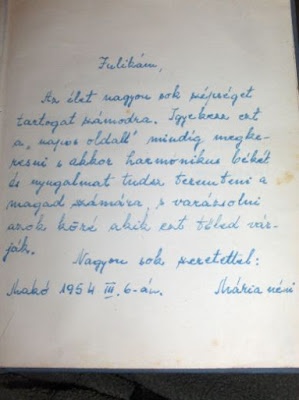 Julikám,
Az élet nagyon sok szépséget
tartogat számodra. Igyekezz ezt
a „napos oldalt” mindig megke-
resni s akkor harmonikus békét
és nyugalmat tudsz teremteni a
magad számára, s varázsolni
azok köré akik ezt tőled vár-
ják.
Nagyon sok szeretettel:
Makó 1954 III. 6-án. Mária néni